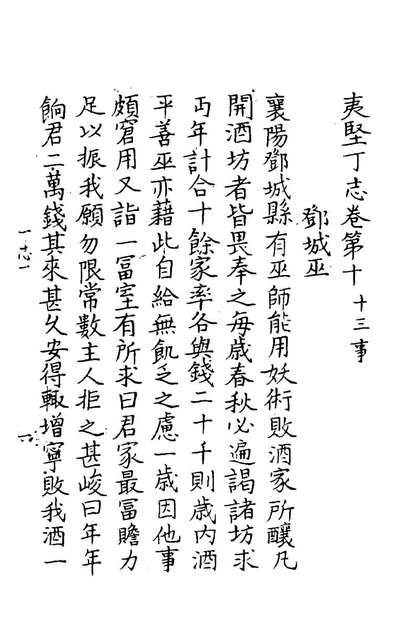 夷堅丁志卷第十 十三事
鄧城巫
襄陽鄧城縣有巫師能用妖術敗酒家所釀凡
開酒坊者皆畏奉之每歲春秋必遍謁諸坊求
丐年計合十餘家率各與錢二十千則歲内酒
平善巫亦藉此自給無飢乏之慮一歲因他事
頗窘用又詣一冨室有所求曰君家最冨贍力
足以振我願勿限常數主人拒之甚峻曰年年
餉君二萬錢其來甚久安得輒增寧敗我酒一